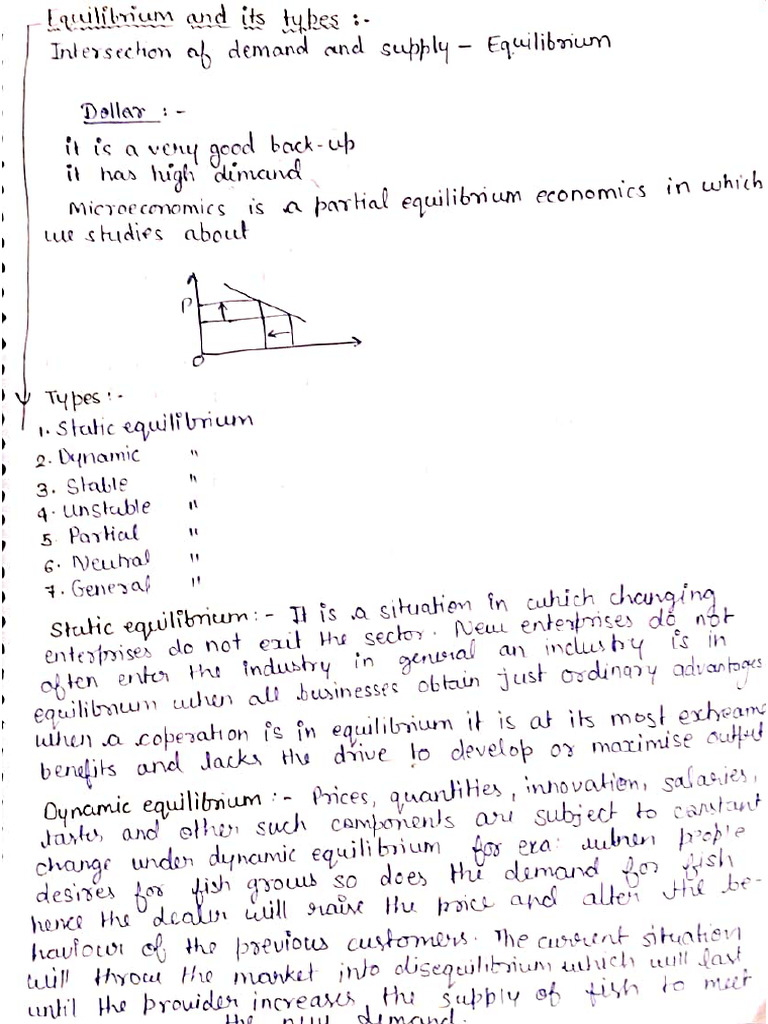 Equilibrium and its types :-
Intersection of demand and supply – Equilibrium
Dollar :-
it is a very good back-up
it has high dimand
Microeconomics is a partial equilibrium economics in which
we studies about
P
O
Types :-
1. Static equilibrium
2. Dynamic "
3. Stable "
4. Unstable "
5. Partial "
6. Neutral "
7. General "
Static equilibrium :- It is a situation in which changing
enterprises do not exit the sector. New enterprises do not
often enter the industry in general an industry is in
equilibrium when all businesses obtain just ordinary advantages
when a coperation is in equilibrium it is at its most extream
benefits and lacks the drive to develop or maximise output
Dynamic equilibrium :- Prices, quantities, innovation, salaries,
tastes and other such components are subject to constant
change under dynamic equilibrium for exa: when people
desires for fish grows so does the demand for fish
hence the dealer will raise the price and alter the be-
haviour of the previous customers. The current situation
will throw the market into disequilibrium which will last
until the provider increases the supply of fish to meet
the new demand.